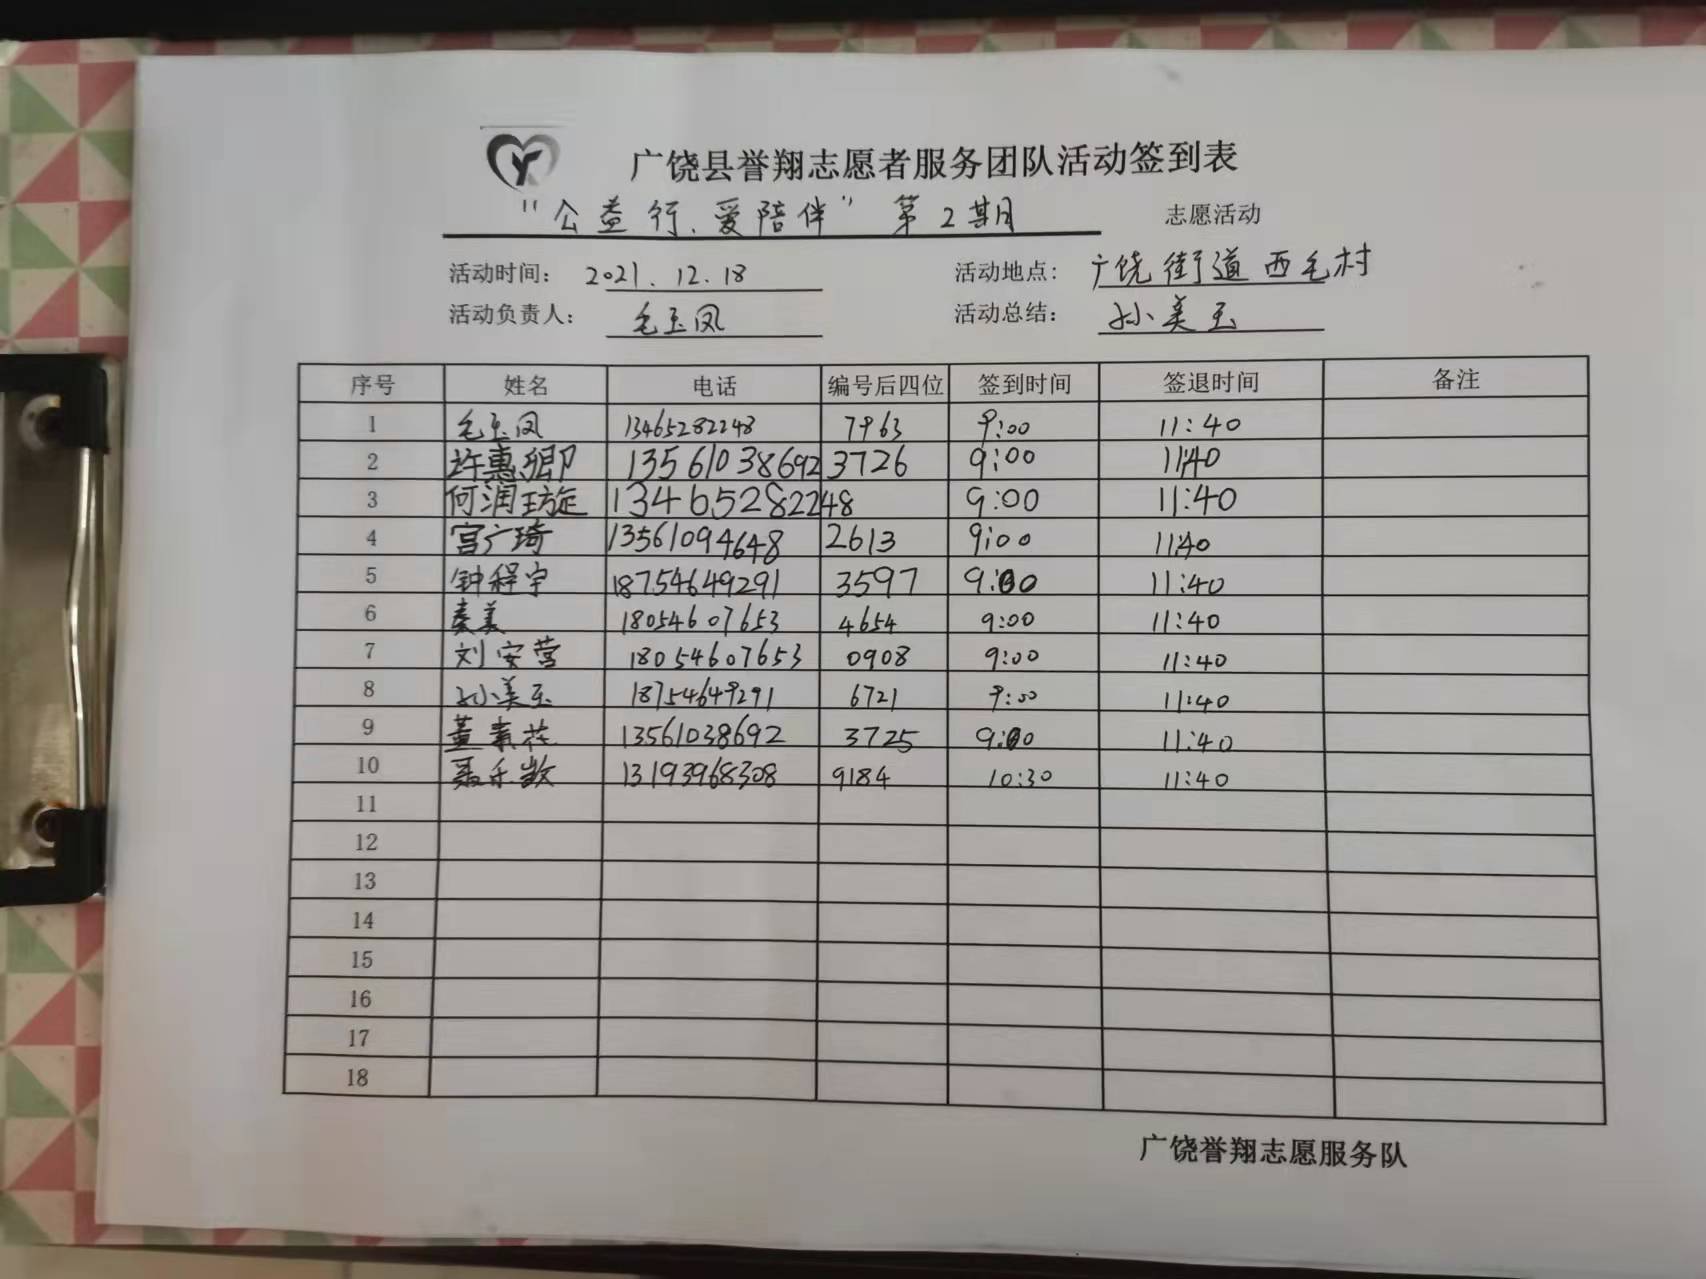 广饶县誉翔志愿者服务团队活动签到表
"公益行、爱陪伴" 第2期 志愿活动
活动时间: 2021.12.18 活动地点: 广饶街道西毛村
活动负责人: 毛玉凤 活动总结: 孙美玉
序号 姓名 电话 编号后四位 签到时间 签退时间 备注
1 毛玉凤 13465282248 7963 9:00 11:40
2 许惠卿 13561038692 3726 9:00 11:40
3 何润璇 13465282248 9:00 11:40
4 宫广琦 13561094648 2613 9:00 11:40
5 钟程宇 18754649291 3597 9:00 11:40
6 秦美 18054607653 4654 9:00 11:40
7 刘安营 18054607653 0908 9:00 11:40
8 孙美玉 18754649291 6721 9:00 11:40
9 董素花 13561038692 3725 9:00 11:40
10 13193968308 9184 10:30 11:40
11
12
13
14
15
16
17
18
广饶誉翔志愿服务队